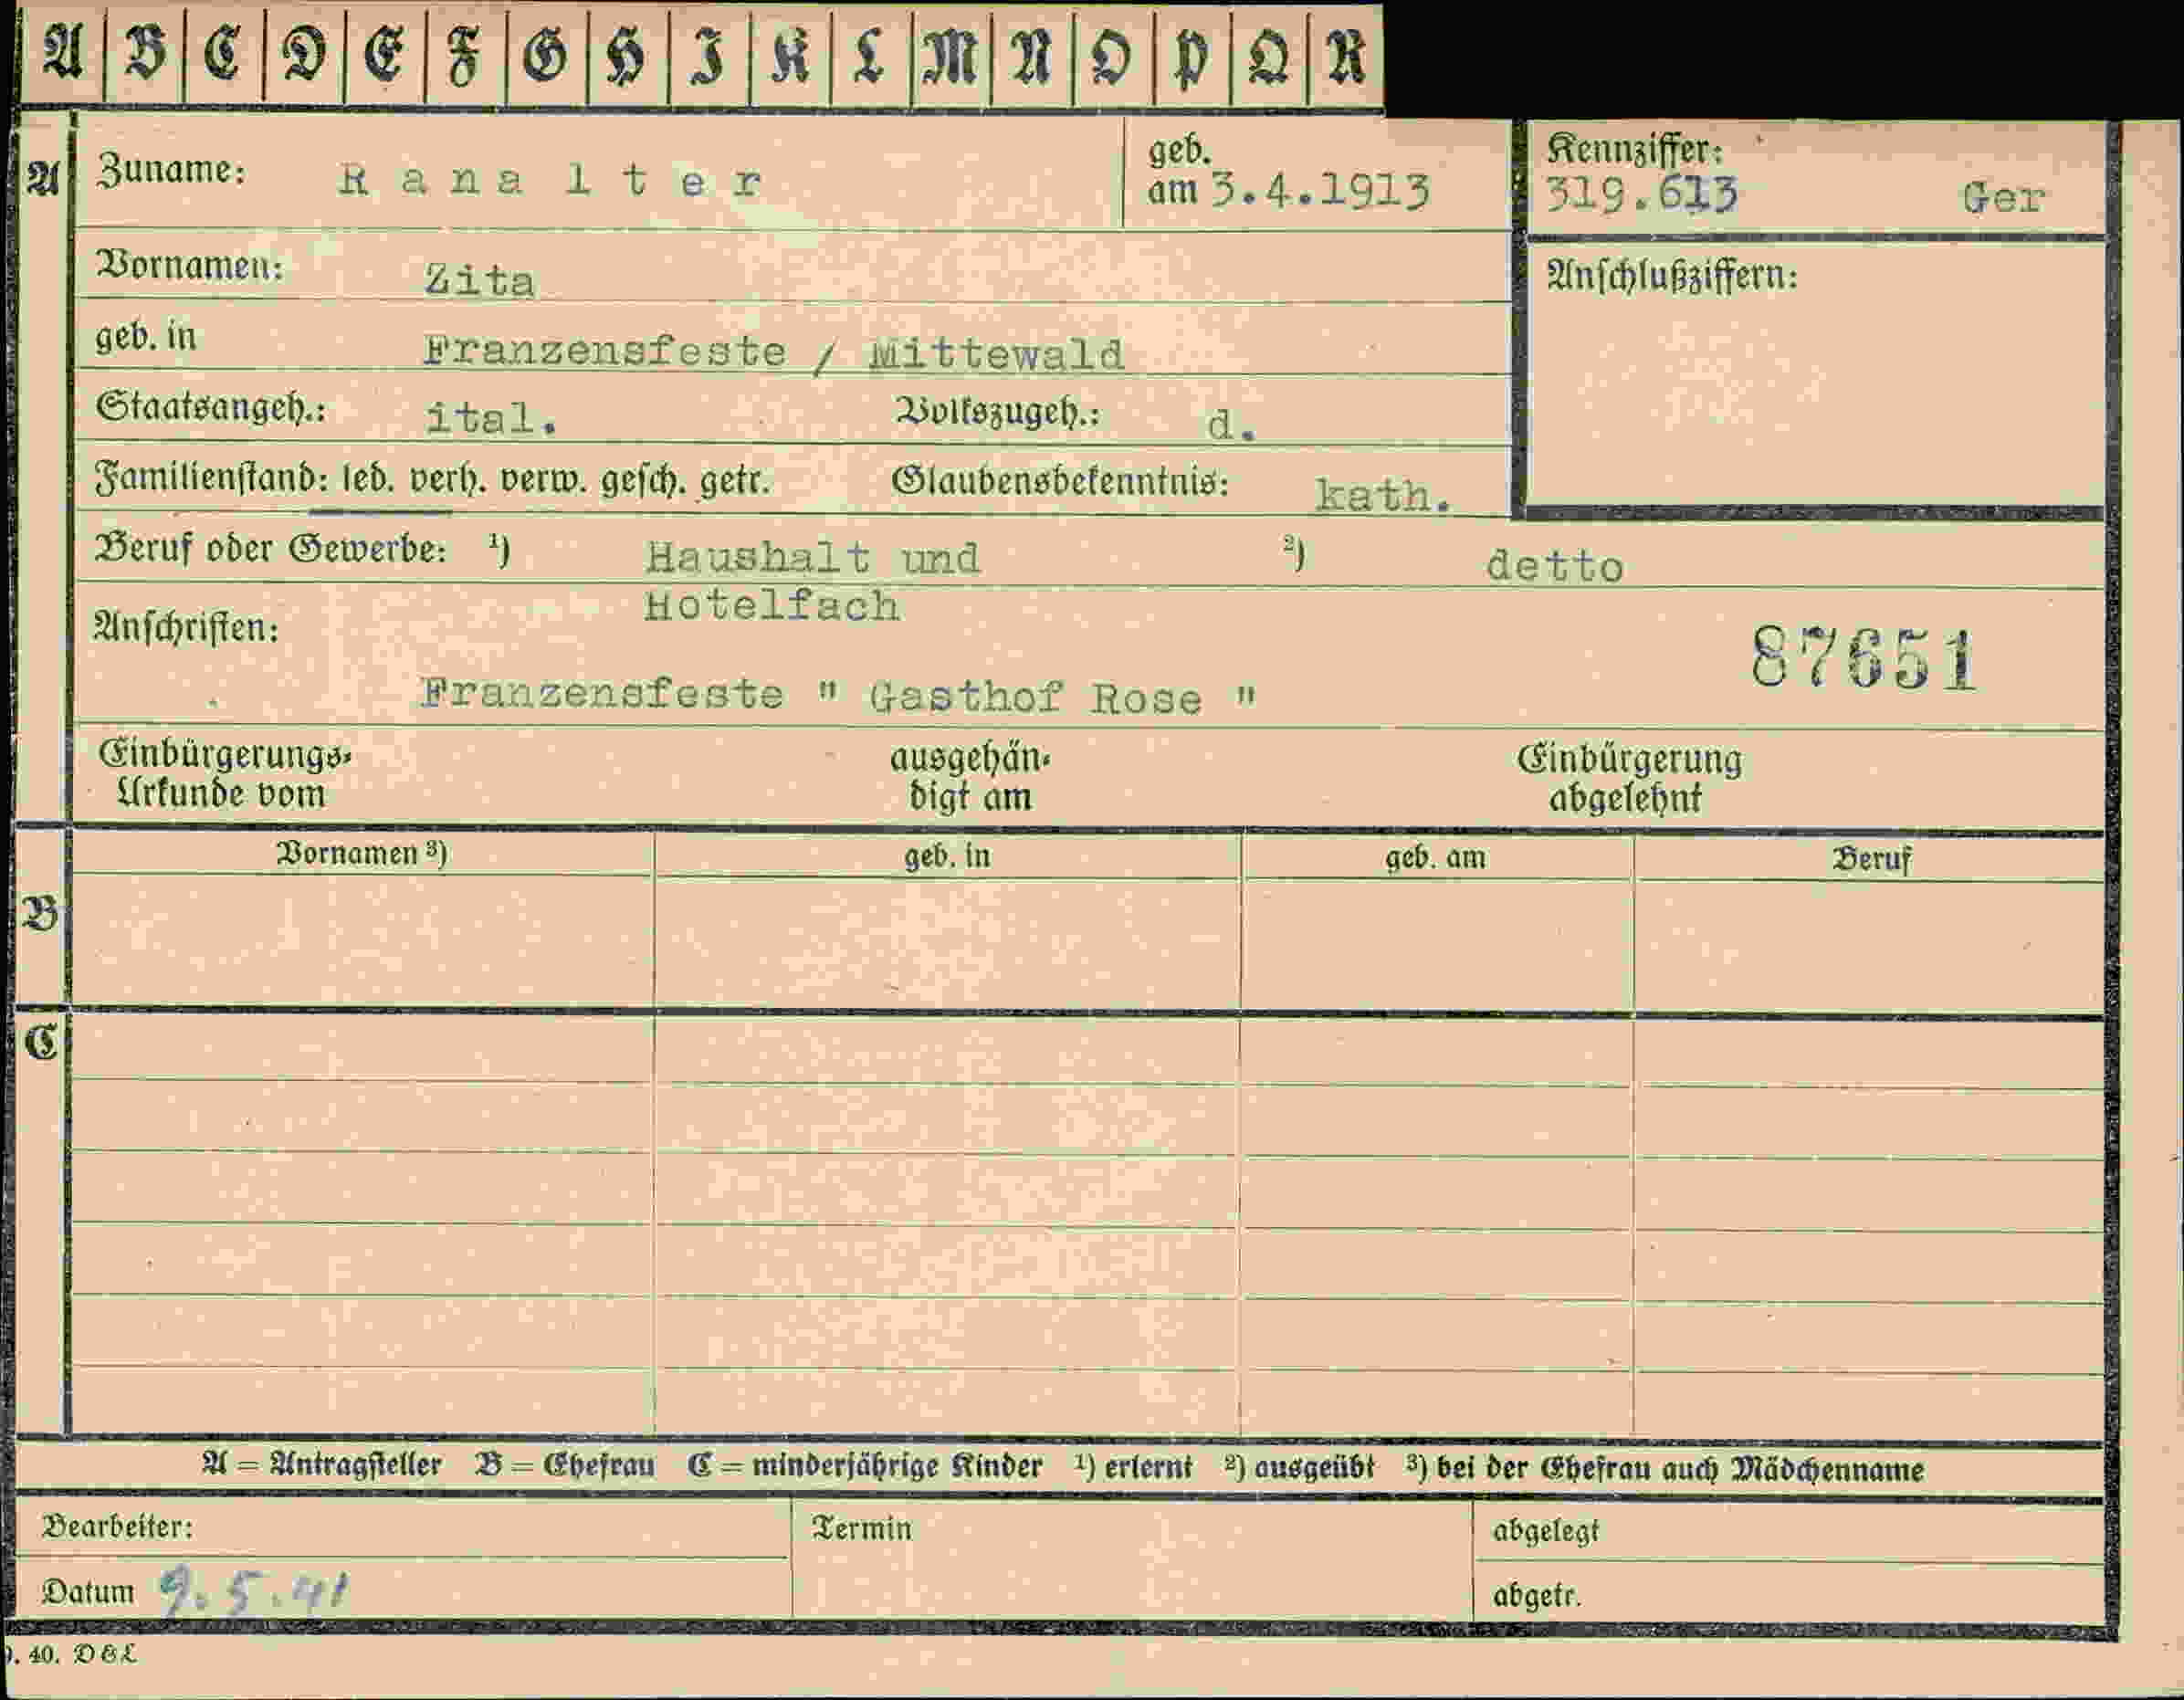 A B C D E F G H I K L M N O P Q R
A Zuname: Ranalter geb. am 3.4.1913 Kennziffer: 319.613 Ger
Vornamen: Zita Anschlußziffern:
geb. in Franzensfeste / Mittewald
Staatsangeh.: ital. Volkszugeh.: d.
Familienstand: led. verh. verw. gesch. getr. Glaubensbekenntnis: kath.
Beruf oder Gewerbe: 1) Haushalt und 2) detto
Hotelfach
Anschriften: 87651
Franzensfeste " Gasthof Rose "
Einbürgerungs- ausgehän- Einbürgerung
Urkunde vom digt am abgelehnt
Vornamen 3) geb. in geb. am Beruf
B
C
A = Antragsteller B = Ehefrau C = minderjährige Kinder 1) erlernt 2) ausgeübt 3) bei der Ehefrau auch Mädchenname
Bearbeiter: Termin abgelegt
Datum 9.5.41 abgetr.
. 40. D&L